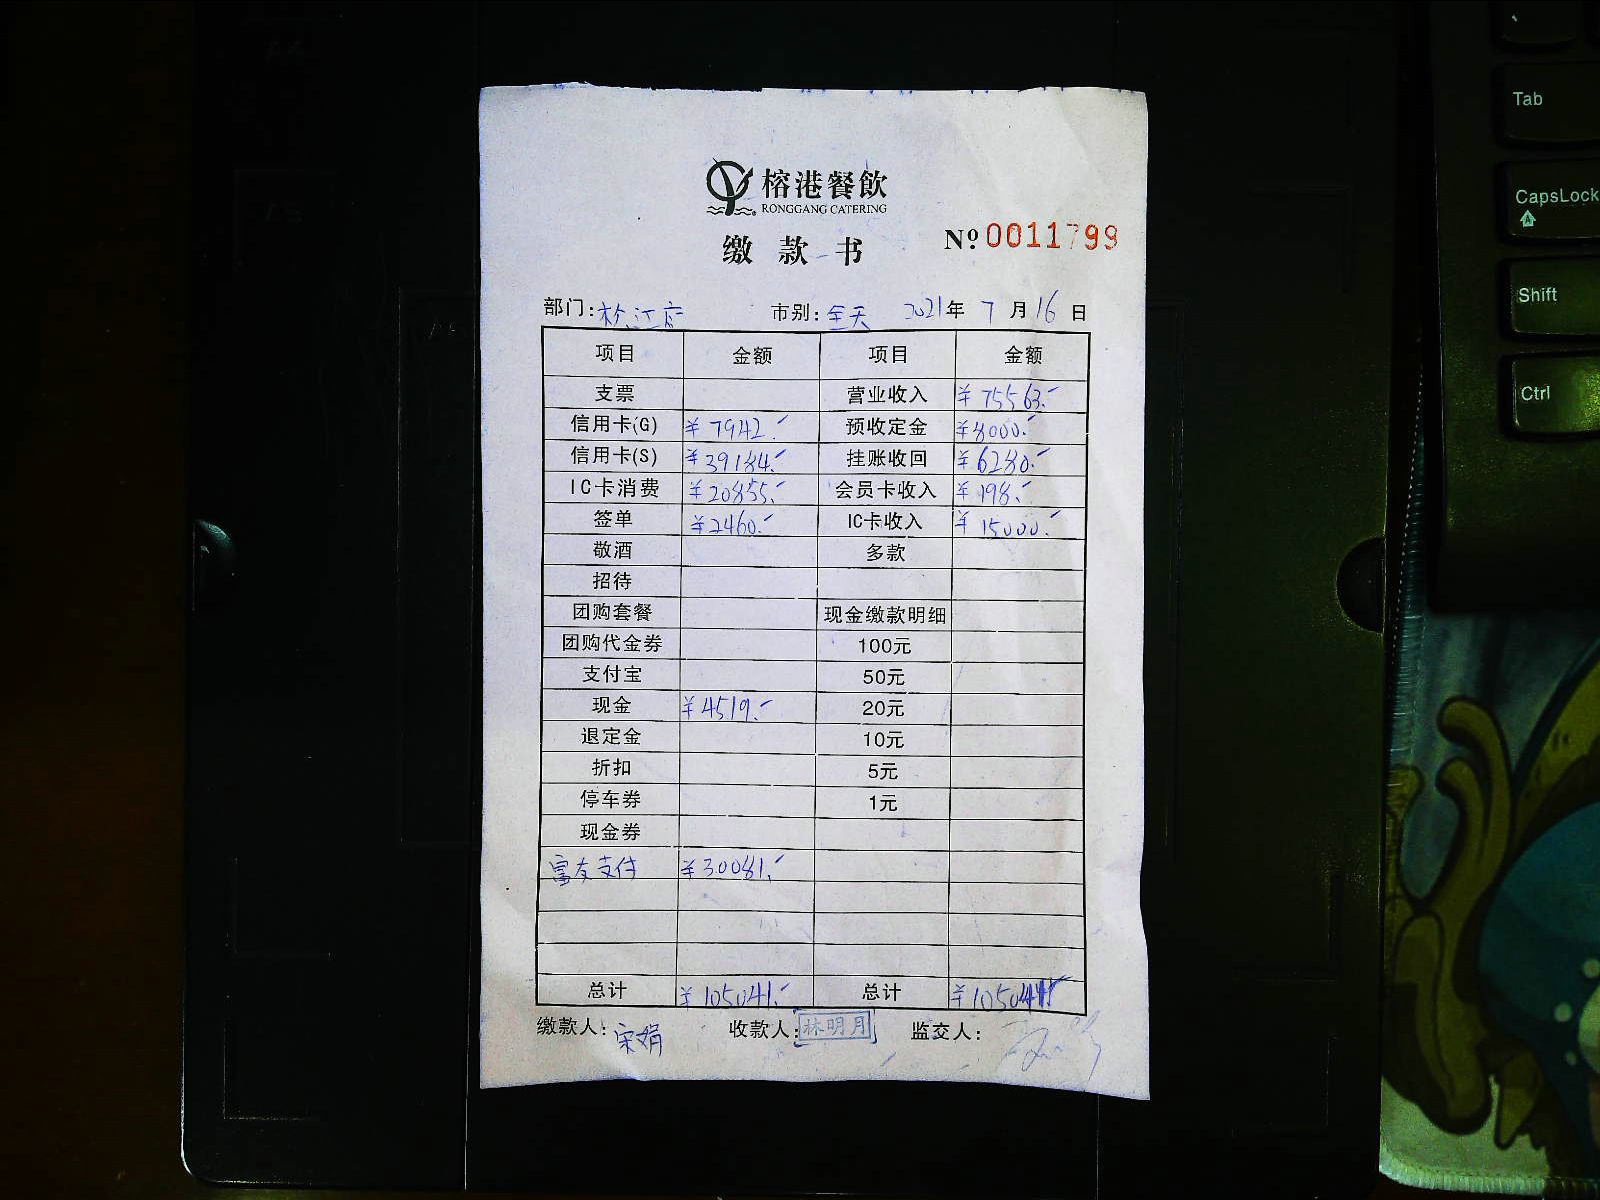 榕港餐飲
RONGGANG CATERING
缴款书
№0011799
部门:松江府 市别:全天 2021年7月16日
项目 金额 项目 金额
支票 营业收入 ¥75563.-
信用卡(G) ¥7942.- 预收定金 ¥8000.-
信用卡(S) ¥39184.- 挂账收回 ¥6280.-
IC卡消费 ¥20855.- 会员卡收入 ¥198.-
签单 ¥2460.- IC卡收入 ¥15000.-
敬酒 多款
招待
团购套餐 现金缴款明细
团购代金券 100元
支付宝 50元
现金 ¥4519.- 20元
退定金 10元
折扣 5元
停车券 1元
现金券
富友支付 ¥30081.-
总计 ¥105041.- 总计 ¥105041.-
缴款人:宋娟 收款人:林明月 监交人:
Tab
CapsLock
Shift
Ctrl